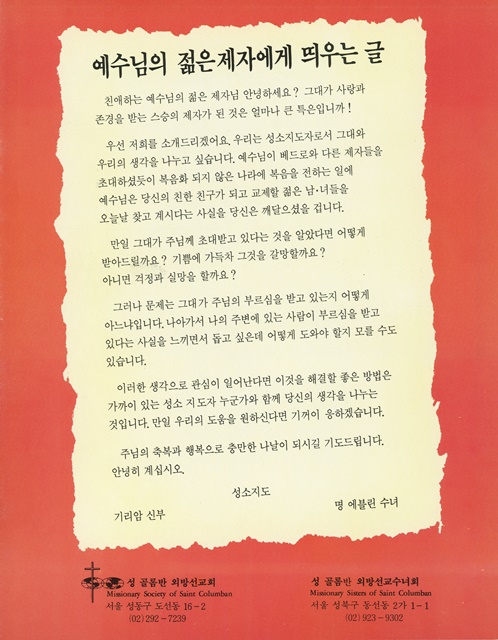 예수님의 젊은 제자에게 띄우는 글
친애하는 예수님의 젊은 제자님 안녕하세요? 그대가 사랑과
존경을 받는 스승의 제자가 된 것은 얼마나 큰 특은입니까!
우선 저희를 소개드리겠어요. 우리는 성소지도자로서 그대와
우리의 생각을 나누고 싶습니다. 예수님이 베드로와 다른 제자들을
초대하셨듯이 복음화 되지 않은 나라에 복음을 전하는 일에
예수님은 당신의 친한 친구가 되고 교제할 젊은 남·녀들을
오늘날 찾고 계시다는 사실을 당신은 깨달으셨을 겁니다.
만일 그대가 주님께 초대받고 있다는 것을 알았다면 어떻게
받아드릴까요? 기쁨에 가득차 그것을 갈망할까요?
아니면 걱정과 실망을 할까요?
그러나 문제는 그대가 주님의 부르심을 받고 있는지 어떻게
아느냐입니다. 나아가서 나의 주변에 있는 사람이 부르심을 받고
있다는 사실을 느끼면서 돕고 싶은데 어떻게 도와야 할지 모를 수도
있습니다.
이러한 생각으로 관심이 일어난다면 이것을 해결할 좋은 방법은
가까이 있는 성소 지도자 누군가와 함께 당신의 생각을 나누는
것입니다. 만일 우리의 도움을 원하신다면 기꺼이 응하겠습니다.
주님의 축복과 행복으로 충만한 나날이 되시길 기도드립니다.
안녕히 계십시오.
성소지도
기리암 신부 명 에블린 수녀
성 골롬반 외방선교회
Missionary Society of Saint Columban
서울 성동구 도선동 16-2
(02)292-7239
성 골롬반 외방선교수녀회
Missionary Sisters of Saint Columban
서울 성북구 동선동 2가 1-1
(02)923-9302